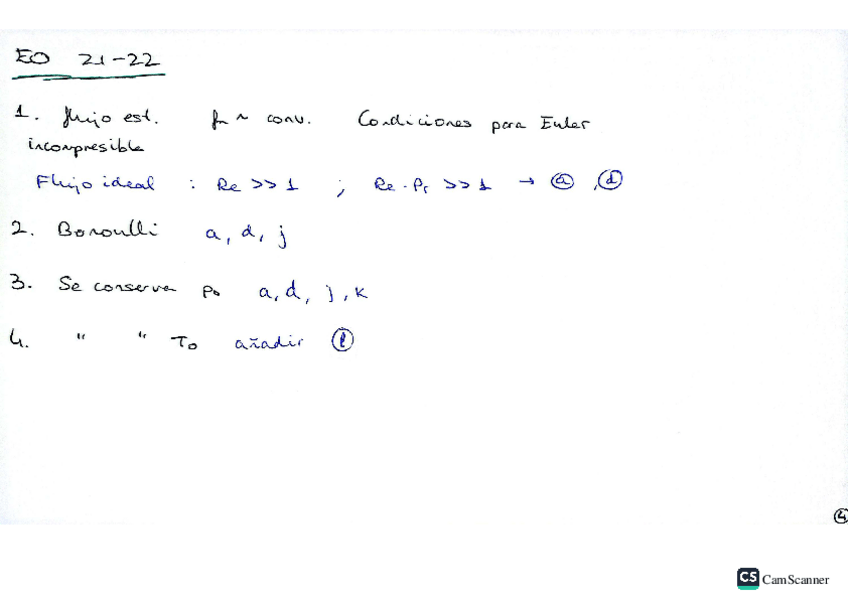 EO 21-22
1. flujo est. fm ~ conv. Condiciones para Euler
incompresible
Flujo ideal : Re >> 1 ; Re·Pr >> 1 → a , d
2. Beroulli a, d, j
3. Se conserva Po a, d, j, k
4. " " To añadir l
4
CS CamScanner